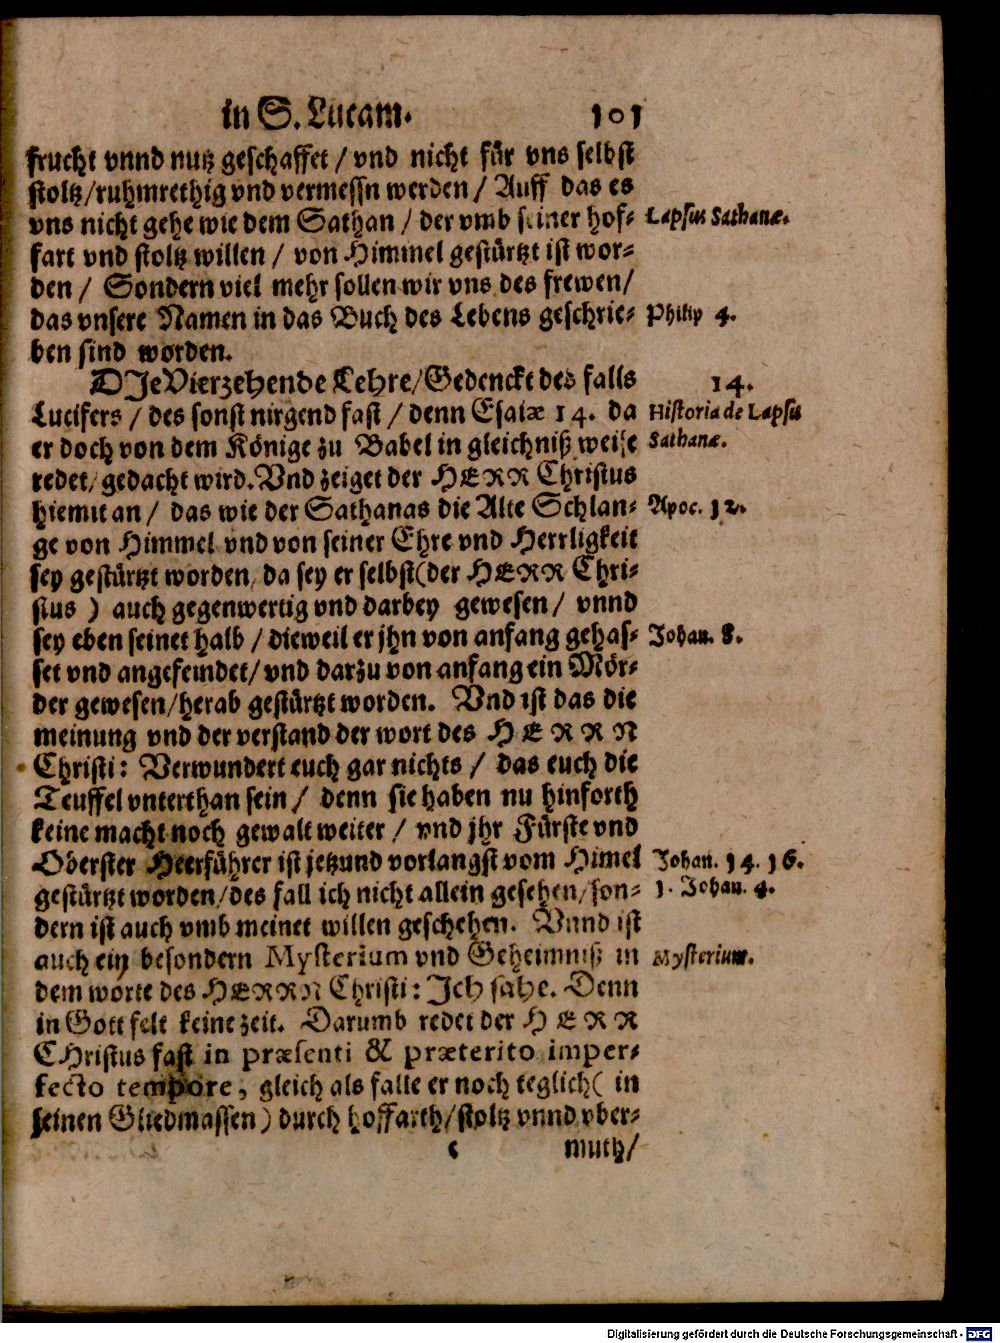 in S. Lucam. 101
frucht vnnd nutz geschaffet / vnd nicht für vns selbst
stoltz/ruhmrethig vnd vermessn werden / Auff das es
vns nicht gehe wie dem Sathan / der vmb seiner hof-
Lapsus Sathanæ.
fart vnd stoltz willen / von Himmel gestürtzt ist wor-
den / Sondern viel mehr sollen wir vns des frewen/
das vnsere Namen in das Buch des Lebens geschrie-
Philip 4.
ben sind worden.
DJe Vierzehende Lehre/Gedenckt des falls
14.
Lucifers / des sonst nirgend fast / denn Esaiæ 14. da
Historia de Lapsu
er doch von dem Könige zu Babel in gleichniß weise
Sathanæ.
redet/ gedacht wird. Vnd zeiget der HERR Christus
hiemit an / das wie der Sathanas die Alte Schlan-
Apoc. 12.
ge von Himmel vnd von seiner Ehre vnd Herrligkeit
sey gestürtzt worden, da sey er selbst (der HERR Chri-
stus ) auch gegenwertig vnd darbey gewesen / vnnd
sey eben seinet halb / dieweil er jhn von anfang gehas-
Johan. 8.
set vnd angefeindet/ vnd darzu von anfang ein Mör-
der gewesen/herab gestürtzt worden. Vnd ist das die
meinung vnd der verstand der wort des HERRN
Christi: Verwundert euch gar nichts / das euch die
Teuffel vnterthan sein / denn sie haben nu hinforth
keine macht noch gewalt weiter / vnd jhr Fürste vnd
Oberster Heerführer ist jetzund vorlangst vom Himel
Johan. 14. 16.
gestürtzt worden/des fall ich nicht allein gesehen/son-
1. Johan. 4.
dern ist auch vmb meinet willen geschehen. Vnnd ist
auch ein besondern Mysterium vnd Geheimniß in
Mysterium.
dem worte des HERRN Christi: Jch sahe. Denn
in Gott felt keine zeit. Darumb redet der HERR
CHristus fast in præsenti & præterito imper-
fecto tempore, gleich als falle er noch teglich ( in
seinen Gliedmassen ) durch hoffarth/stoltz vnnd vber-
c muth/
Digitalisierung gefördert durch die Deutsche Forschungsgemeinschaft - DFG